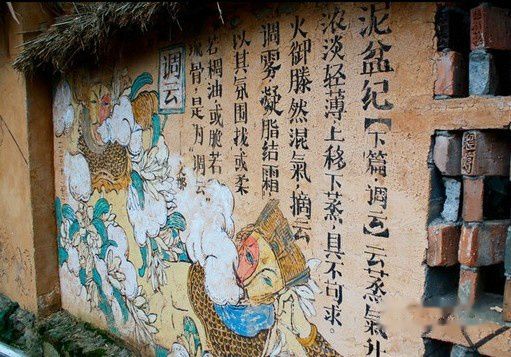 泥盆纪【下篇·调云】云蒸氣升
浓淡轻薄上移下蒸，具不可求。
火御滕然混氣，摘云
调雾，凝脂结霜
以其氛围找或柔
若稠油或脆若
骨，是为“调云”
调云